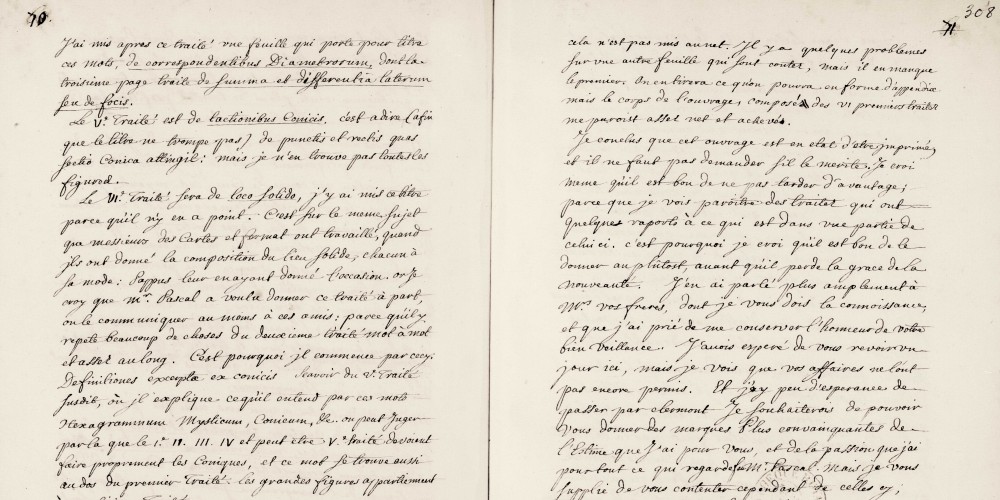 70.
J'ai mis apres ce traité vne feuille qui porte pour titre
ces mots, de correspondentibus Diametrorum, dont la
troisieme page traite de summa et differentia laterum
seu de focis.
Le V.e Traité est de tactionibus Conicis, c'est a dire (afin
que le titre ne trompe pas) de punctis et rectis quas
sectio Conica attingit: mais je n'en trouve pas toutes les
figures.
Le VI.e Traité sera de loco solido, j'y ai mis ce titre
parce qu'il n'y en a point. C'est sur le meme sujet
que messieurs des Cartes et fermat ont travaillé, quand
jls ont donné la composition du lieu solide, chacun à
sa mode: Pappus leur en ayant donné l'occasion. or Je
croy que Mr. Pascal a voulu donner ce traité à part,
ou le communiquer au moins à ces amis: parce qu'il y
repete beaucoup de choses du deuxieme traité mot à mot
et assez au long. C'est pourquoi jl commence par cecy.
Definitiones excerptæ ex conicis scavoir du Ir Traité
susdit, où jl explique ce qu'il entend par ces mots
Hexagrammum Mysticum, Conicum, &c. on peut Juger
par la que le I.r II. III. IV et peut etre V.e traité devoient
faire proprement les Coniques, et ce mot se trouve aussi
au dos du premier Traité. les grandes figures appartiennent
308
71
cela n'est pas mis au net. Il y a quelques problemes
sur vne autre feuille qui sont contez, mais il en manque
le premier. On en tirera ce qu'on pourra en forme d'appendix
mais le corps de l'ouvrage, composé des VI premiers traitez
me paroist assez net et achevé.
Je conclus que cet ouvrage est en etat d'etre imprimé,
et il ne faut pas demander s'il le merite. Je croi
meme qu'il est bon de ne pas tarder d'avantage;
parce que je vois paroitre des traitez qui ont
quelques raports à ce qui est dans vne partie de
celui ci. c'est pourquoi je croi qu'il est bon de le
donner au plutost, auant qu'il perde la grace de la
nouveauté. J'en ai parlé plus amplement à
Mrs. vos freres, dont je vous dois la connoissance,
et que j'ai prié de me conserver l'honneur de votre
bien veillance. J'auois esperé de vous revoir vn
jour ici, mais je vois que vos affaires ne l'ont
pas encore permis. Et j'ay peu d'esperance de
passer par clermont Je souhaiterois de pouvoir
vous donner des marques Plus convainquantes de
l'Estime que J'ai pour vous, et de la passion que j'ai
pour tout ce qui regarde feu Mr. Pascal. Mais je vous
supplie de vous contenter cependant de celles cy;